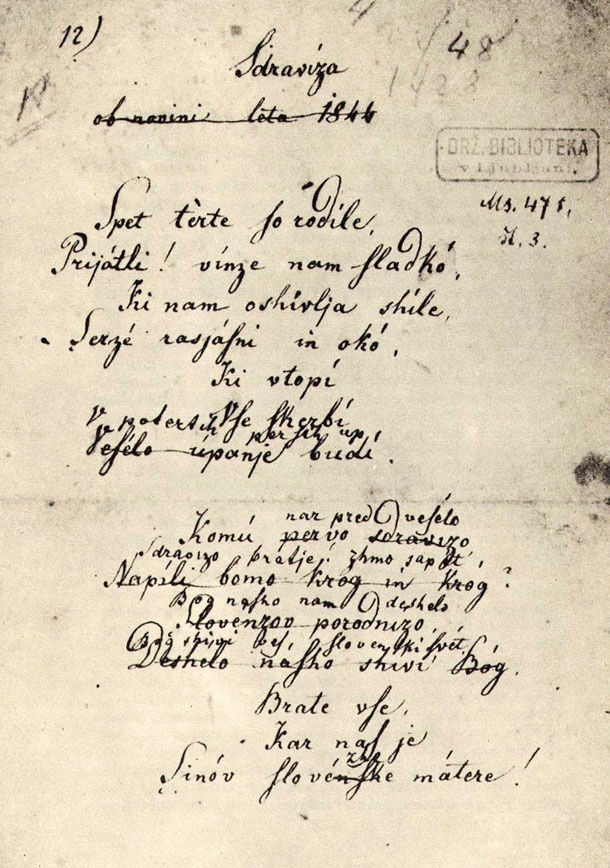 12)
48
Sdravíza
ob novini léta 1844
DRŽ. BIBLIOTEKA
v Ljubljani.
Ms. 471,
N. 3.
Spet tèrte so rodíle,
Prijátli! vínze nam sladkó,
Ki nam oshívlja shíle,
Serzé rasjásni in okó,
Ki vtopí
Vse skerbí
V potertih persih up
Vesélo úpanje budí.
nar pred vesélo
Komú pervo sdravizo
Sdravizo bratje! zhmo sapét',
Napíli bomo krog in krog?
Bog nasho nam deshelo
Slovenzov porodnizó,
Bog shivi ves slovenski svét,
Deshelo násho shíví Bóg.
Brate vse,
Kar nas je
Sinóv slovénske mátere!